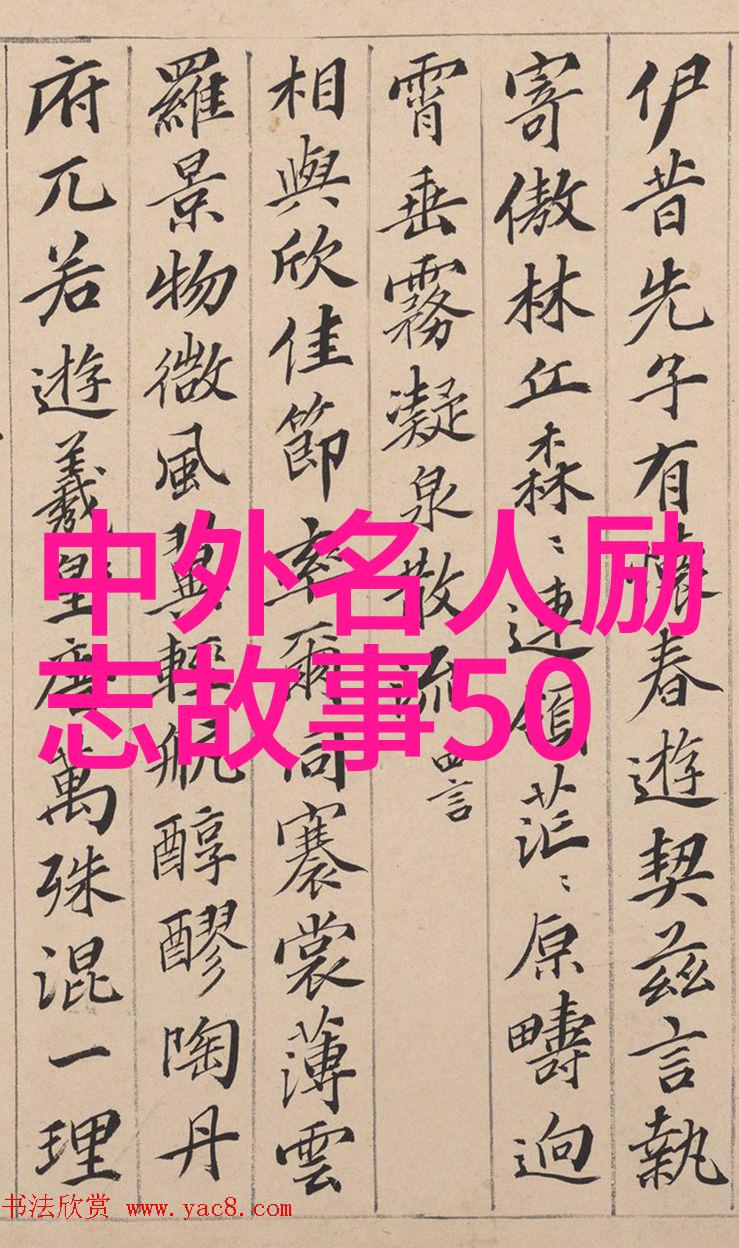 中外名人励
志故事50
伊昔先子有懷春遊契茲言執
寄傲林丘森〻連嶺茫〻原疇迥
霄垂霧凝泉散流 四言
相與欣佳節率爾同褰裳薄雲
羅景物微風翼輕航醇醪陶丹
府兀若遊羲皇唐萬殊混一理
书法欣赏 www.yac8.com